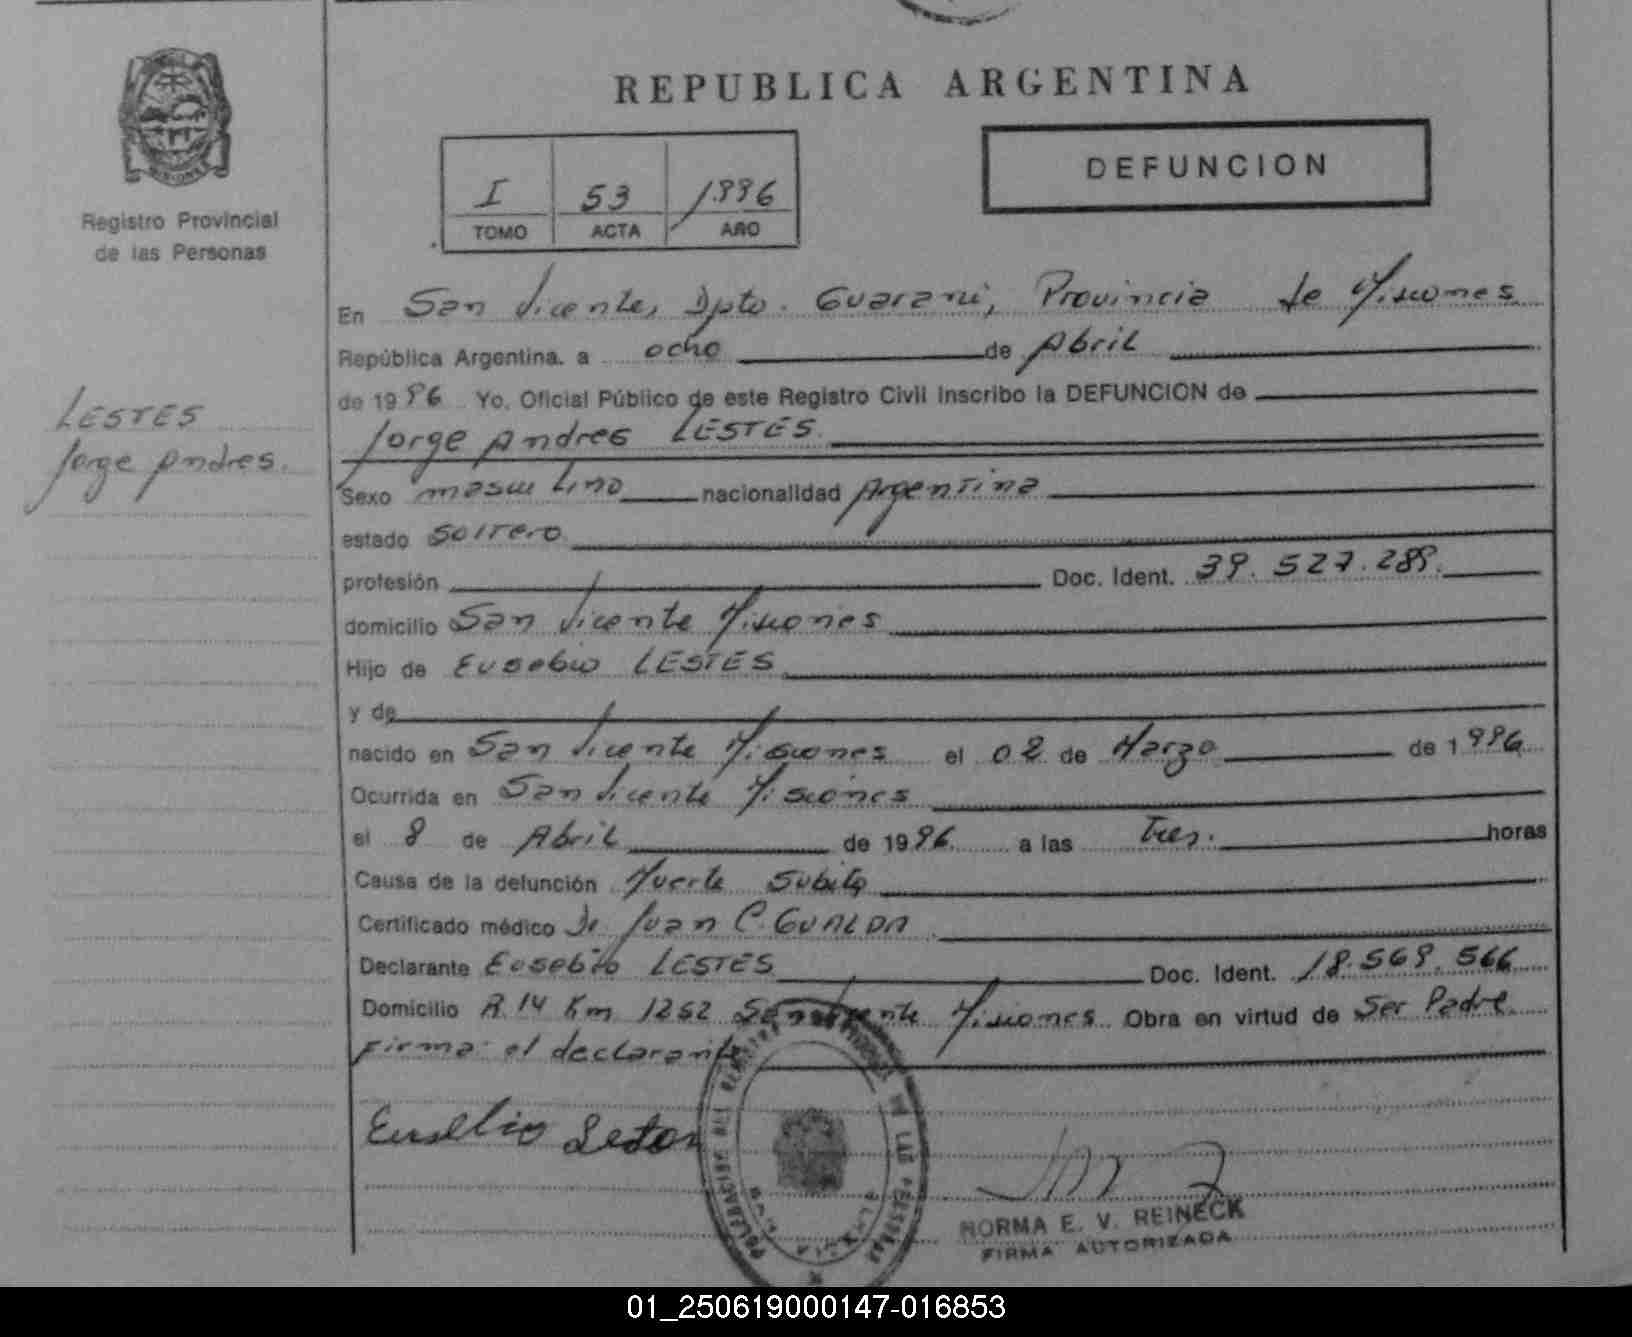 REPUBLICA ARGENTINA
DEFUNCION
I 53 1996
TOMO ACTA AÑO
MISIONES
Registro Provincial
de las Personas
LESTES
Jorge Andres.
En San Vicente, Dpto. Guarani, Provincia de Misiones
República Argentina. a ocho de Abril
de 1996 Yo, Oficial Público de este Registro Civil Inscribo la DEFUNCION de
Jorge Andres LESTES.
Sexo masculino nacionalidad Argentina
estado soltero
profesión Doc. Ident. 39.527.289.
domicilio San Vicente Misiones
Hijo de Eusebio LESTES
y de
nacido en San Vicente Misiones el 02 de Marzo de 1996
Ocurrida en San Vicente Misiones
el 8 de Abril de 1996. a las tres. horas
Causa de la defunción Muerte Subita
Certificado médico Dr. Juan C. GUALDA
Declarante Eusebio LESTES Doc. Ident. 18.569.566
Domicilio R. 14 Km 1252 San Vicente Misiones Obra en virtud de Ser Padre.
Firma: el declarante
Eusebio Lestes
NORMA E. V. REINECK
FIRMA AUTORIZADA
01_250619000147-016853